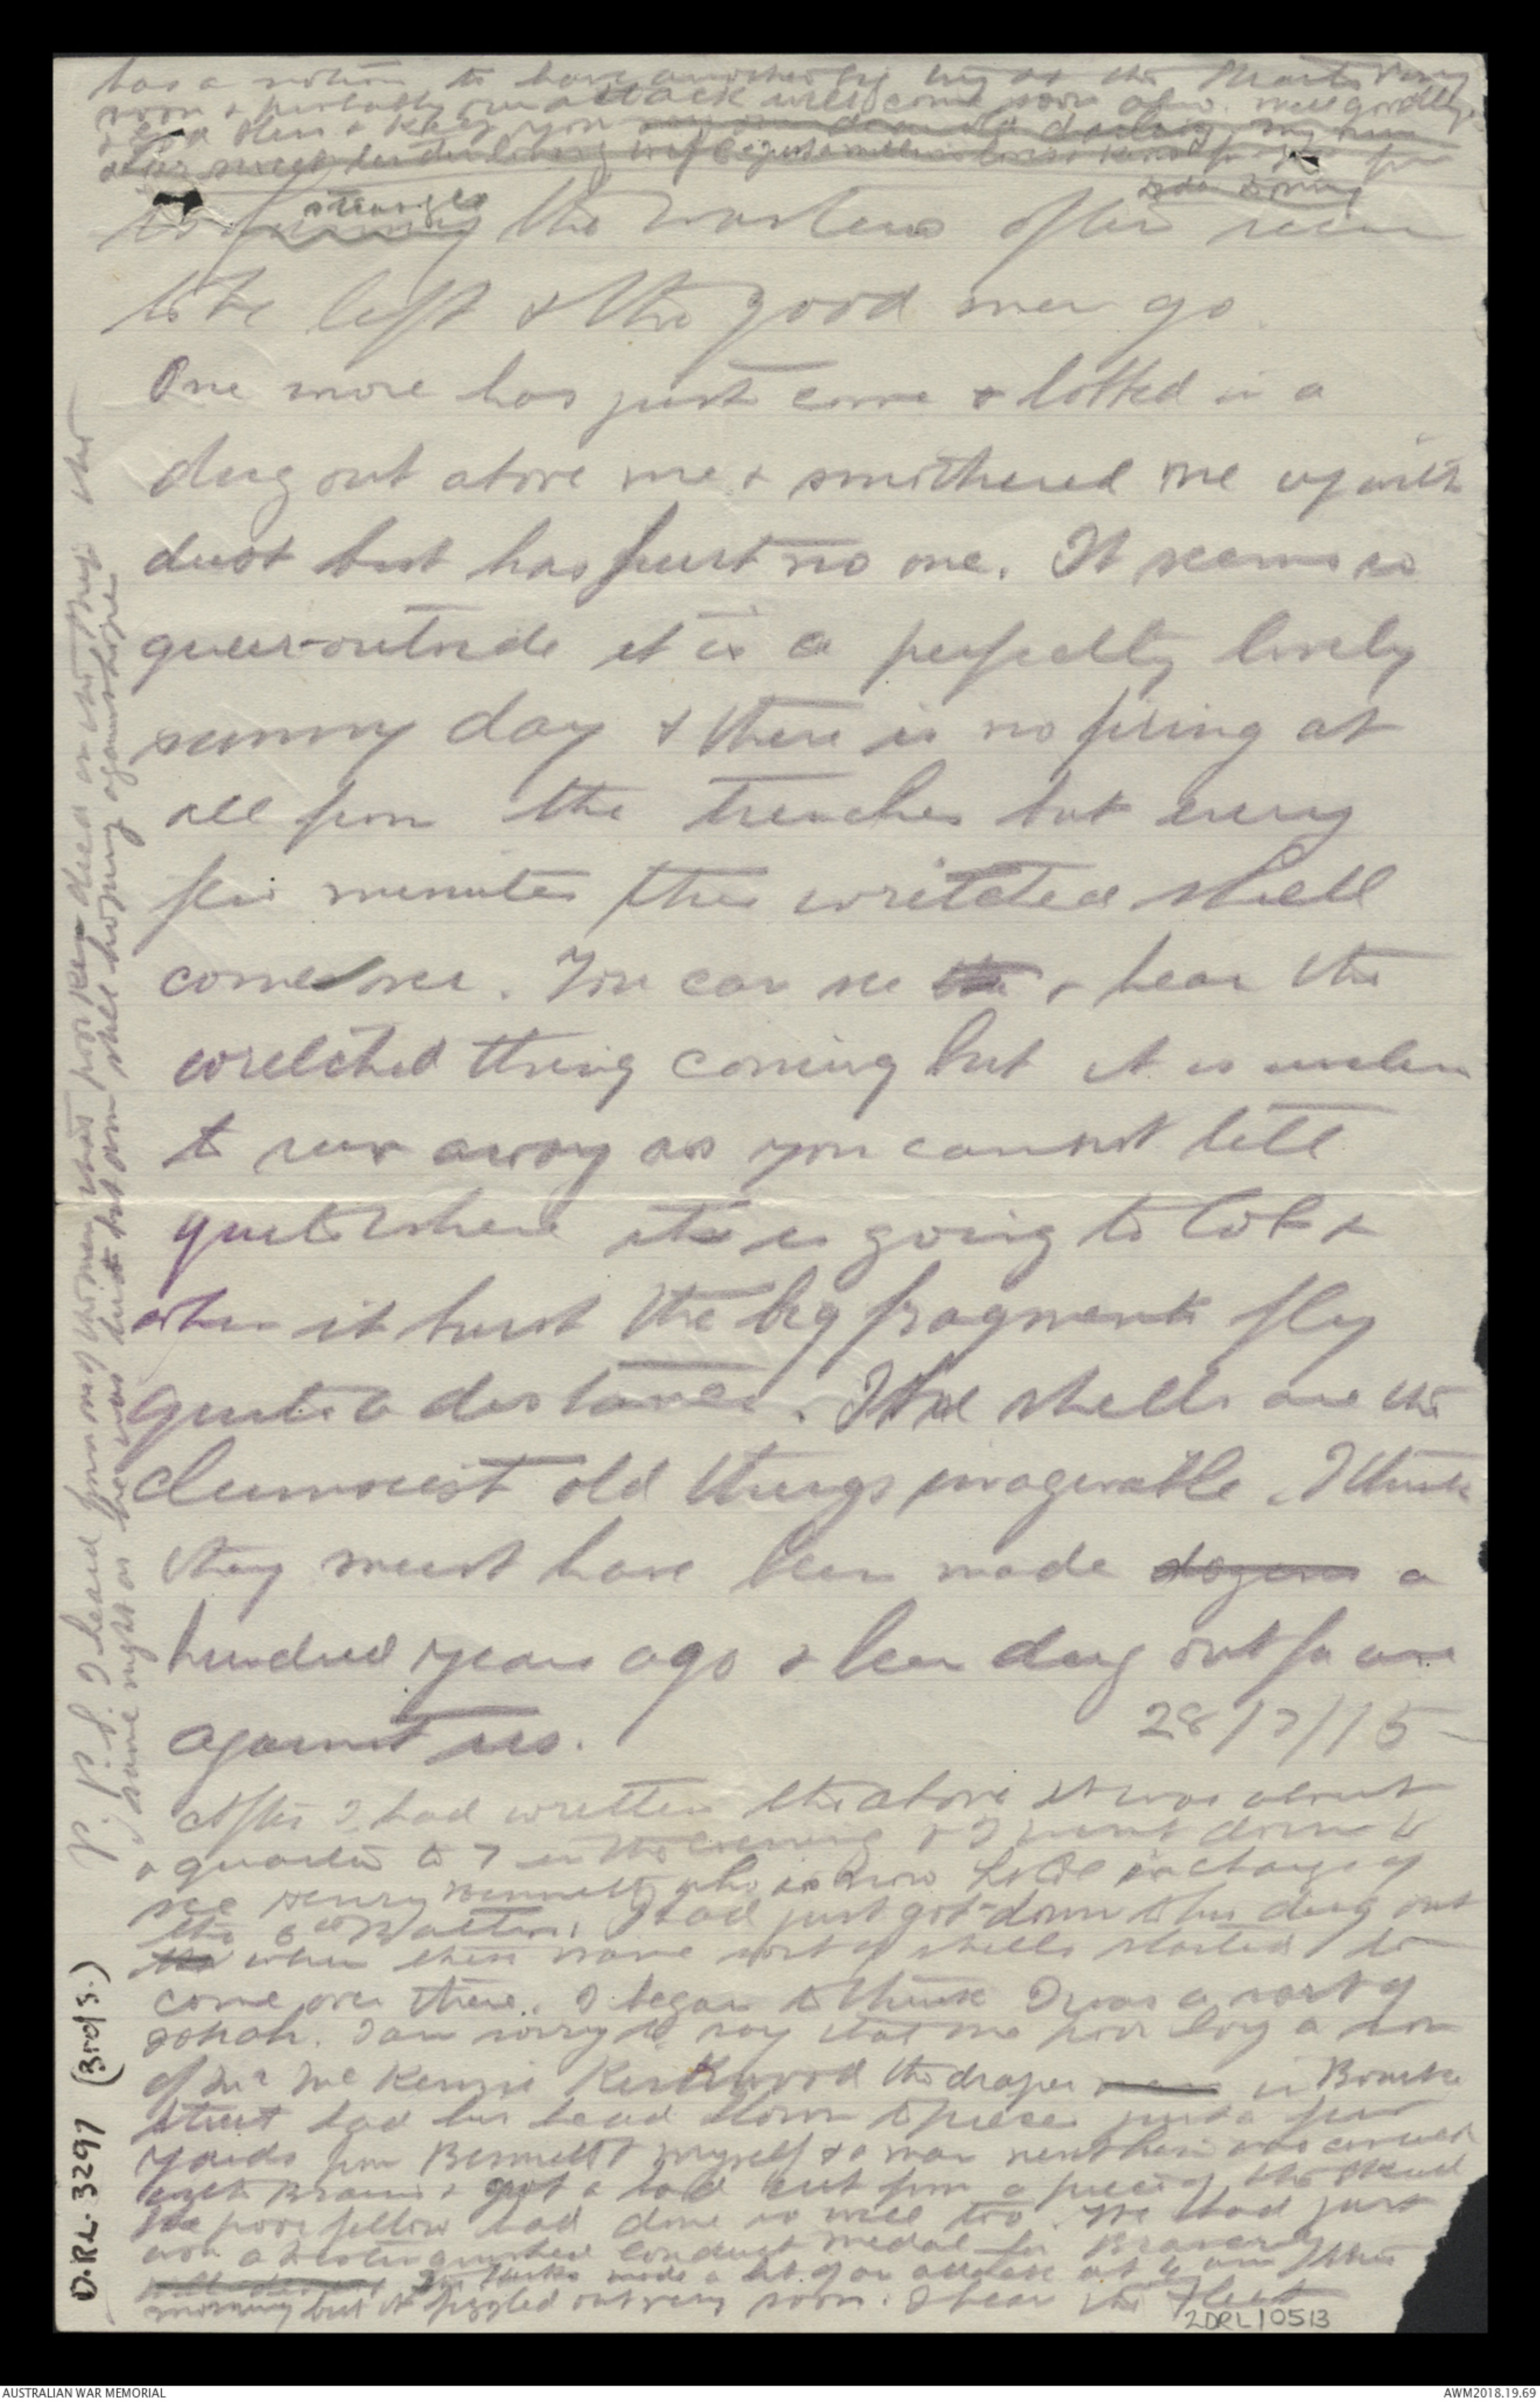 has a notion to have another big try at the Straits very
soon & probably our attack will come soon also. Well goodbye
& God bless & keep you my own dear old darling, my own
dear sweet
strange
the wasters often seem
to be left & the good men go.
One more has just come & lobbed in a
dug out above me & smothered me up with
dust but has hurt no one. It seems so
queer - outside it is a perfectly lovely
sunny day & there is no firing at
all from the trenches but every
few minutes this wretched shell
comes over. You can see the & hear the
wretched thing coming but it is useless
to run away as you cannot tell
quite where it is going to lob &
when it burst the big fragments fly
quite a distance. The shells are the
clumsiest old things imaginable. I think
they must have been made dozens a
hundred years ago & been dug out for use
against us.
28/7/15
After I had written the above it was about
a quarter to 7 in the evening & I went down to
see Henry Bennett, who is now Lt Col in charge of
the 6th Battn. I had just got down to his dug out
the when these same sort of shells started to
come over there. I began to think I was a sort of
Jonah. I am sorry to say that one poor boy a son
of Mr McKenzie Kirkwood the draper in Bourke
Street had his head blown to pieces just a few
yards from Bennett & myself & a man next him was covered
with brains & got a bad cut from a piece of the skull
The poor fellow had done so well too. He had just
won a distinguished conduct medal for bravery
The Turks made a bit of an attack at 4 am this
morning but it fizzled out very soon. I hear the Fleet
P.P.S. I heard from my women that poor Ken died on the ship the
same night as he was but am still hoping against hope
D.RL. 3297 (3rd S.)
2DRL/0513
AUSTRALIAN WAR MEMORIAL
AWM2018.19.69